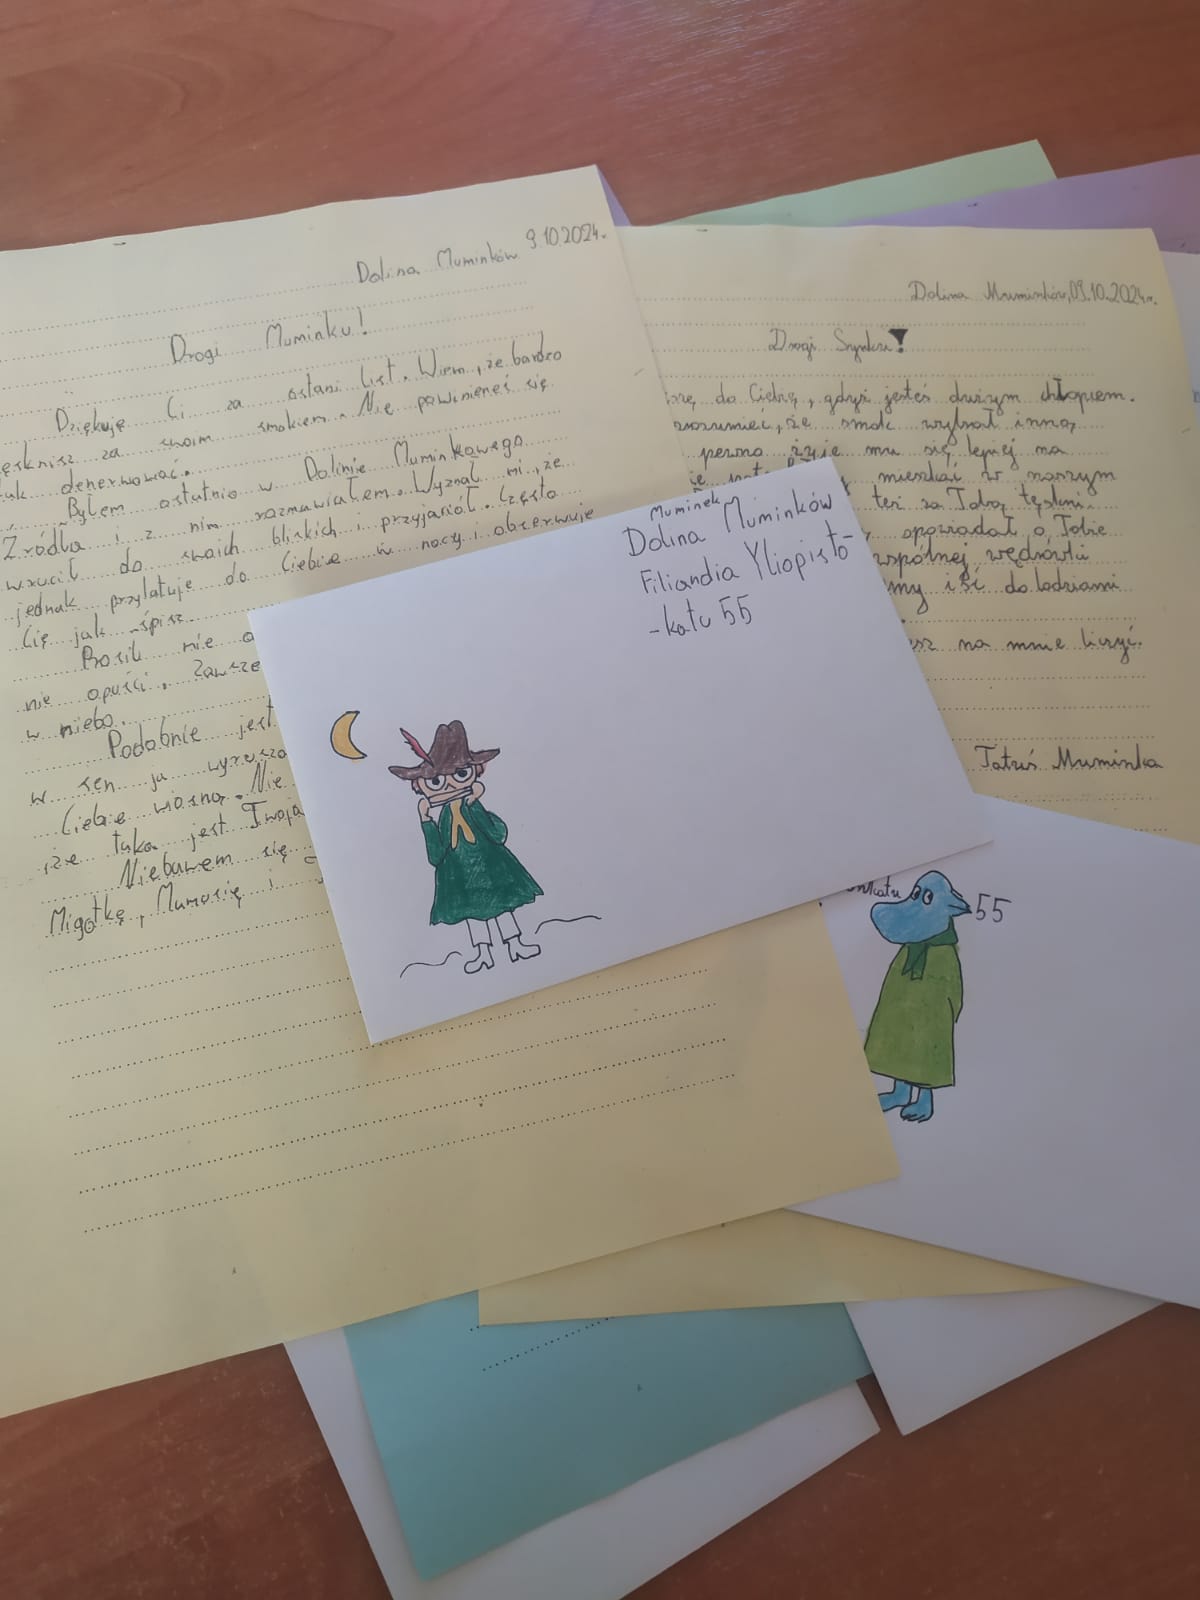 Dolina Muminków 9.10.2024r.
Drogi Muminku!
Dziękuję Ci za ostani list. Wiem, że bardzo
tęsknisz za swoim smokiem. Nie powinieneś się
tak denerwować.
Byłem ostatnio w Dolinie Muminkowego
Źródła i z nim rozmawiałem. Wyznał mi, że
wrócił do swoich bliskich i przyjaciół. Często
jednak przylatuje do Ciebie w nocy i obserwuje
Cię jak śpisz.
Prosił nie
nie opuści. Zawsze
w niebo.
Podobnie jest
w sen ja
Ciebie wiosną. Nie
że taka jest Twoja
Niebawem się
Migotkę, Mamusię i
Muminek
Dolina Muminków
Filiandia Yliopisto-
-katu 55
Dolina Muminków, 09.10.2024r.
Drogi Synku!
do Ciebie, gdyż jesteś dużym chłopcem.
zrozumieć, że smok wybrał inną
pewno żyje mu się lepiej na
mieszkać w naszym
też za Tobą tęskni.
opowiadał o Tobie
wspólnej wędrówki
my iść do lodziami
na mnie liczyć.
Tatuś Muminka
55